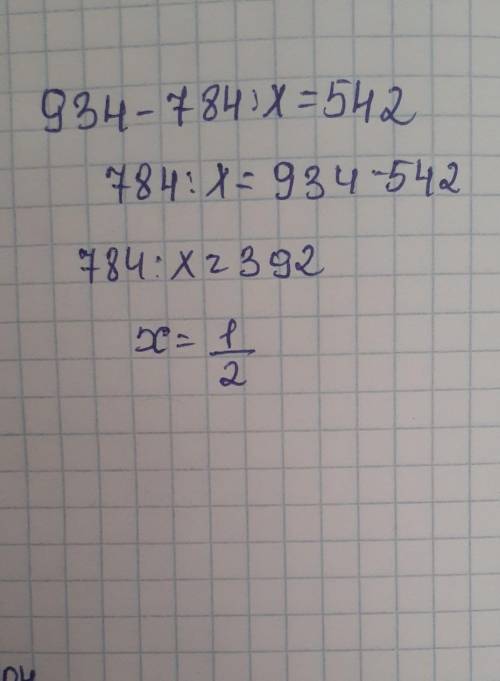 934 - 784 : x = 542
784 : x = 934 - 542
784 : x = 392
x = 1/2